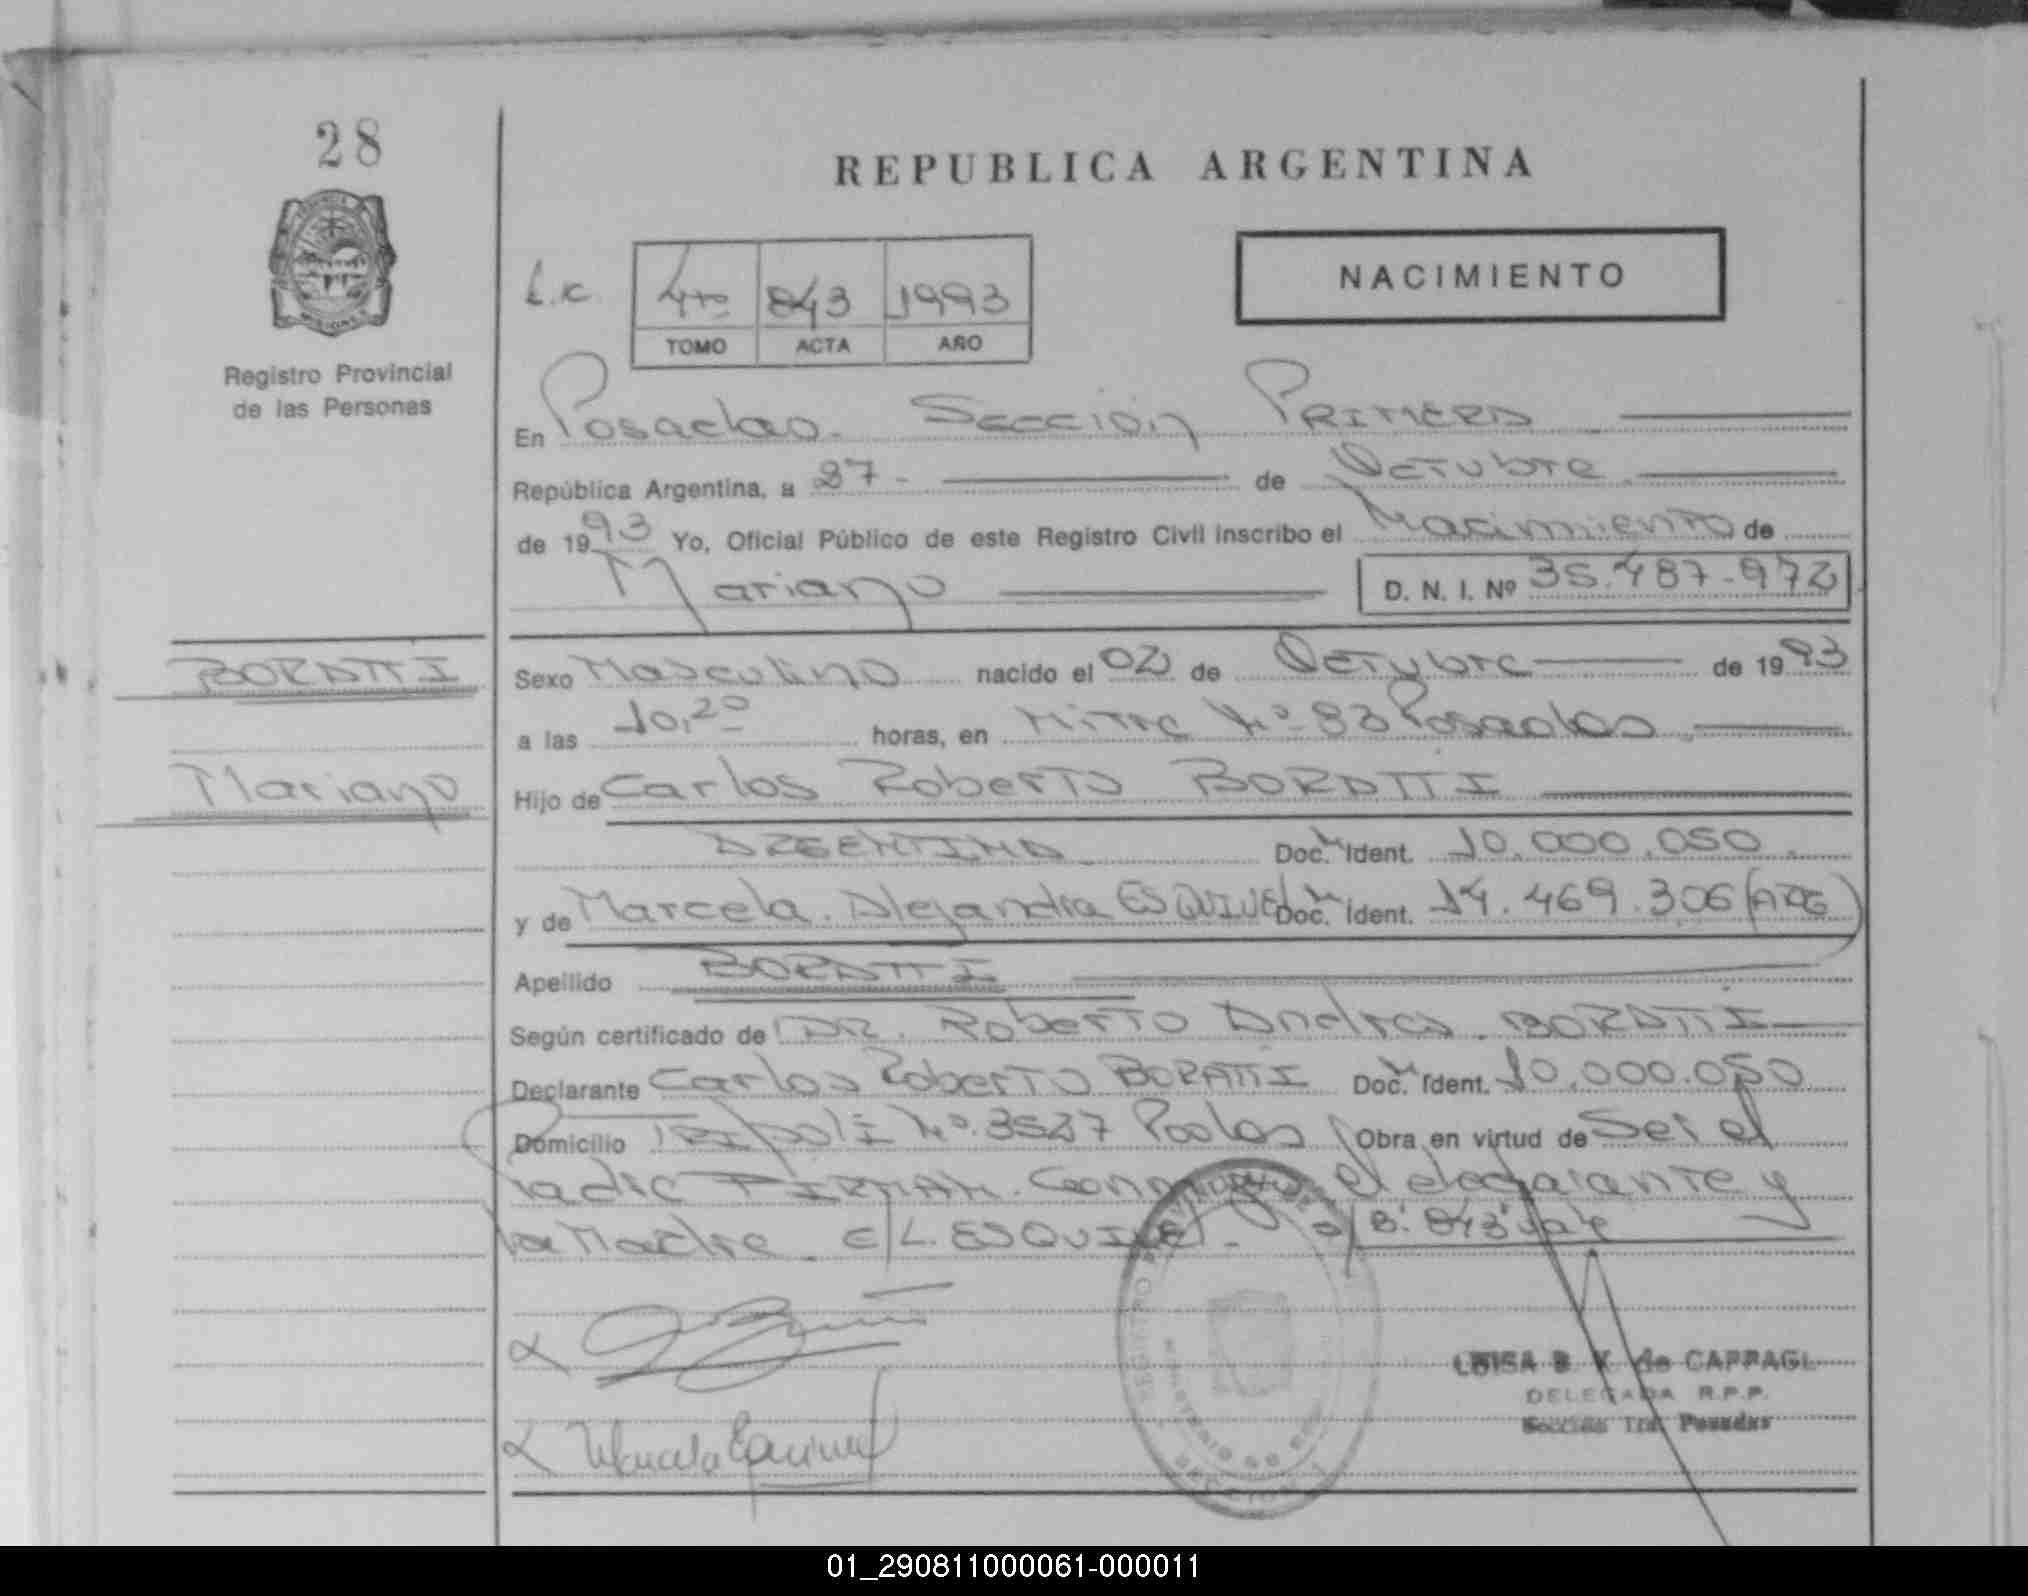 28
REPUBLICA ARGENTINA
NACIMIENTO
L.C. 4to 843 1993
TOMO ACTA AÑO
Registro Provincial
de las Personas
En Posadas. Sección Primera
República Argentina, a 27 - de Octubre
de 1993 Yo, Oficial Público de este Registro Civil inscribo el Nacimiento de
Mariano D. N. I. Nº 35.487.972
BORATTI Sexo Masculino nacido el 02 de Octubre de 1993
a las 10,20 horas, en Mitre Nº 83 Posadas
Mariano Hijo de Carlos Roberto BORATTI
ARGENTINA Doc. Ident. 10.000.050
y de Marcela Alejandra ESQUIVEL Doc. Ident. 14.469.306 (ARG)
Apellido BORATTI
Según certificado de DR. Roberto Andres BORATTI
Declarante Carlos Roberto BORATTI Doc. Ident. 10.000.050
Domicilio Nº 3527 Pdas Obra en virtud de Ser el
Padre FIRMAN. el declarante y
la Madre. E/L. ESQUIVEL. 843 Vale
Marcela Esquivel
LUISA B. de CAPPAGLI
DELEGADA R.P.P.
Sección 1ra. Posadas
01_290811000061-000011